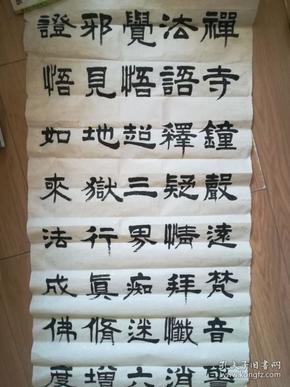 禪寺鐘聲遠梵音
法語釋疑情拜懺消
覺悟超三界痴迷六
邪見地獄行眞脩增
證悟如來法成佛度
孔夫子旧书网